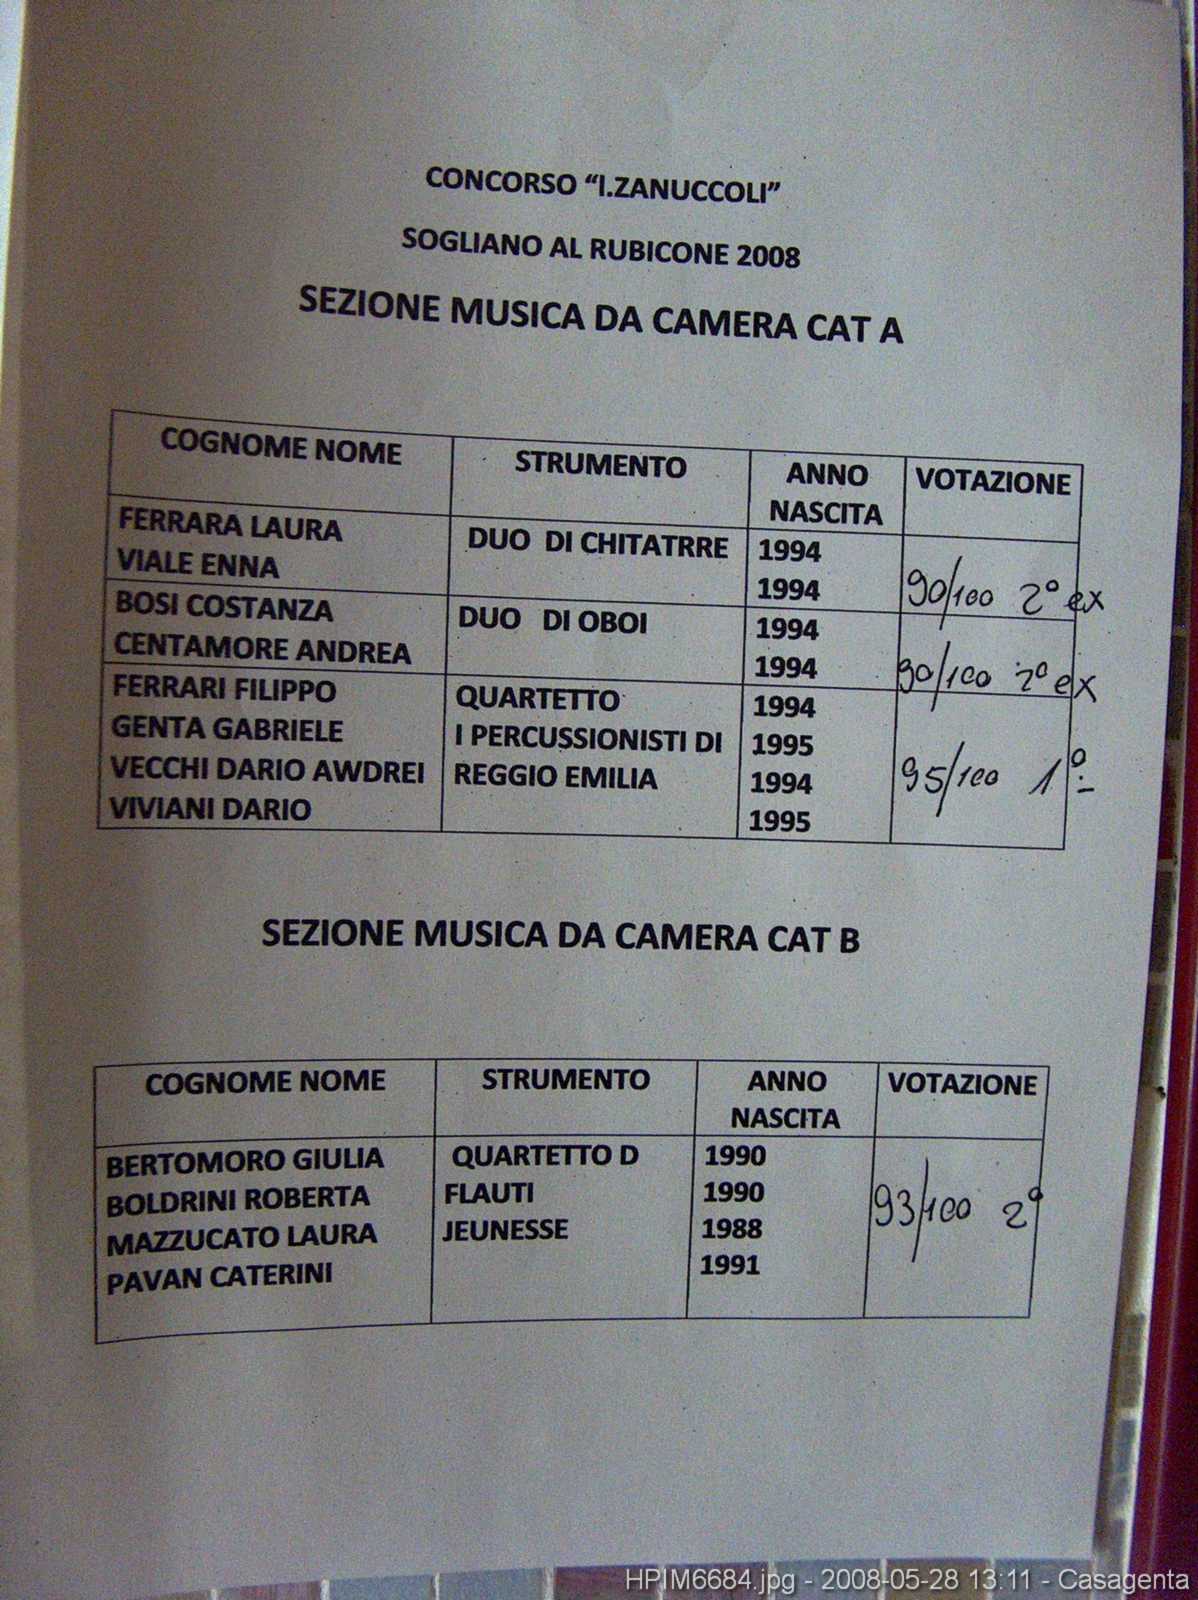 CONCORSO “I.ZANUCCOLI”
SOGLIANO AL RUBICONE 2008
SEZIONE MUSICA DA CAMERA CAT A
COGNOME NOME STRUMENTO ANNO NASCITA VOTAZIONE
FERRARA LAURA DUO DI CHITATRRE 1994
VIALE ENNA 1994 90/100 2° ex
BOSI COSTANZA DUO DI OBOI 1994
CENTAMORE ANDREA 1994 90/100 2° ex
FERRARI FILIPPO QUARTETTO 1994
GENTA GABRIELE I PERCUSSIONISTI DI 1995
VECCHI DARIO AWDREI REGGIO EMILIA 1994 95/100 1°
VIVIANI DARIO 1995
SEZIONE MUSICA DA CAMERA CAT B
COGNOME NOME STRUMENTO ANNO NASCITA VOTAZIONE
BERTOMORO GIULIA QUARTETTO D 1990
BOLDRINI ROBERTA FLAUTI 1990 93/100 2°
MAZZUCATO LAURA JEUNESSE 1988
PAVAN CATERINI 1991
HPIM6684.jpg - 2008-05-28 13:11 - Casagenta